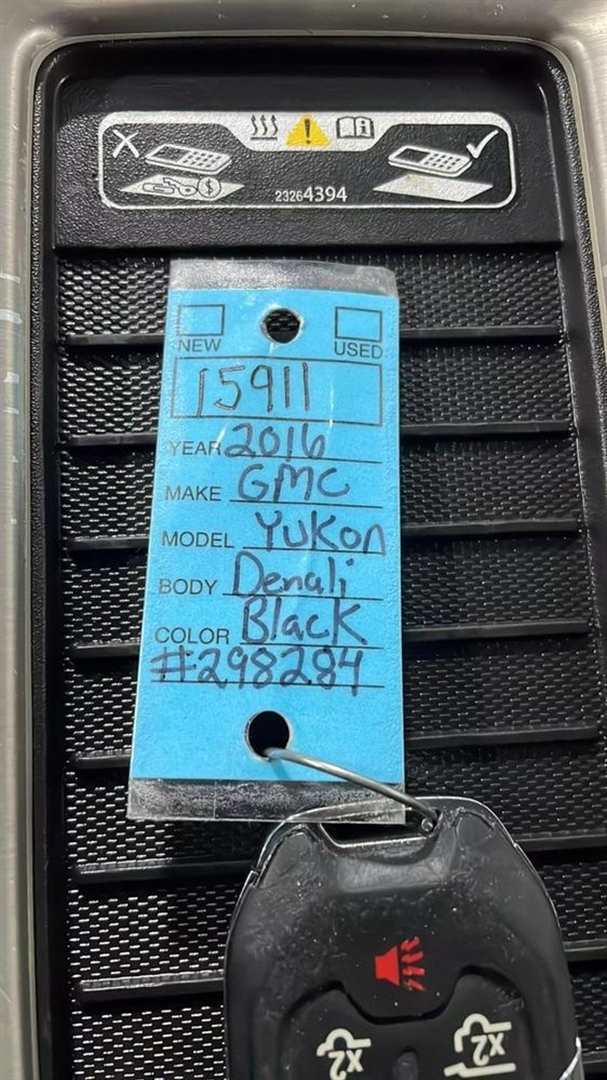 23264394
NEW USED
15911
YEAR 2016
MAKE GMC
MODEL YuKon
BODY Denali
COLOR Black
#298284
x2 x2